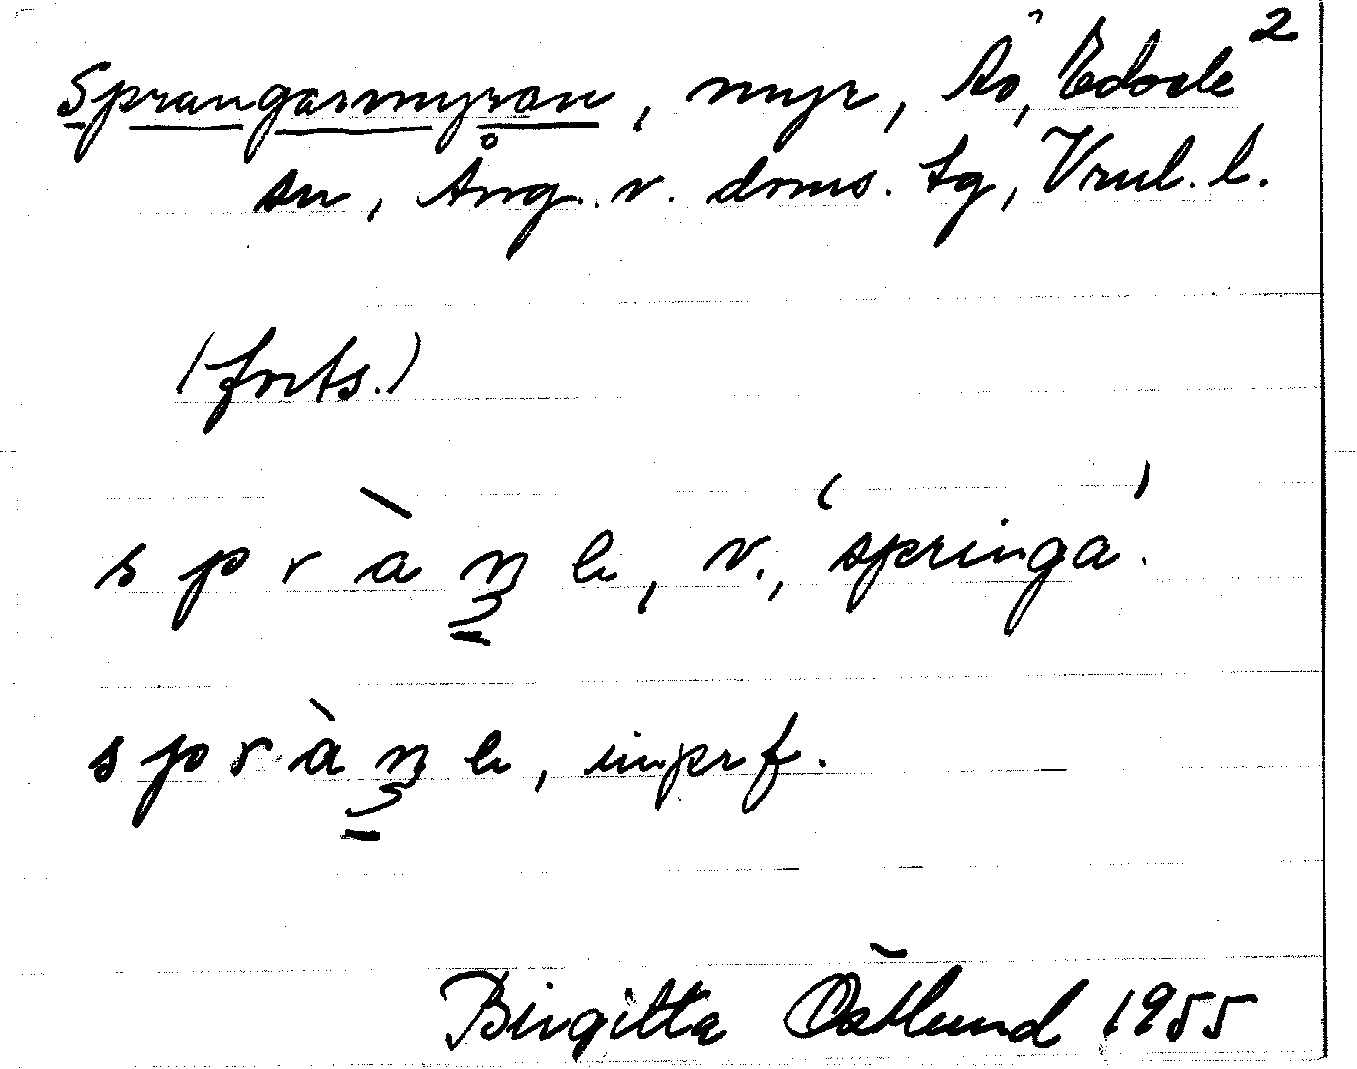 Sprangarmyran, myr, Ås, Edsele 2
sn, Ång. v. doms. tg, Vrnl. l.
(forts.)
spràŋe, v., 'springa'.
spràŋe, imprf.
Birgitta Östlund 1955